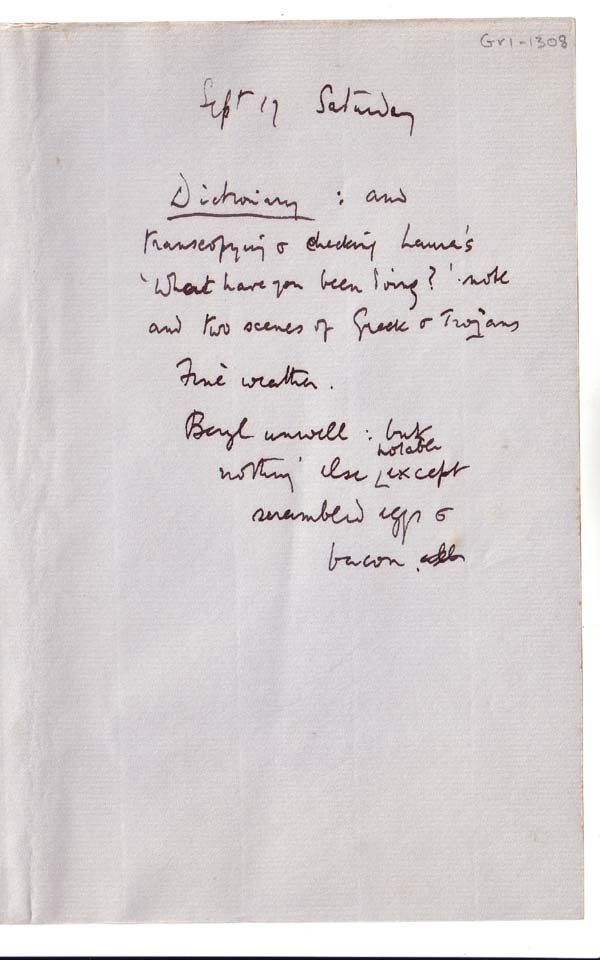 Gr1-1308
Sept 17 Saturday
Dictionary : and
transcopying & checking Laura's
'What have you been doing?' note
and two scenes of Greek & Trojans
Fine weather.
Beryl unwell : but
notable
nothing else except
scrambled eggs &
bacon.